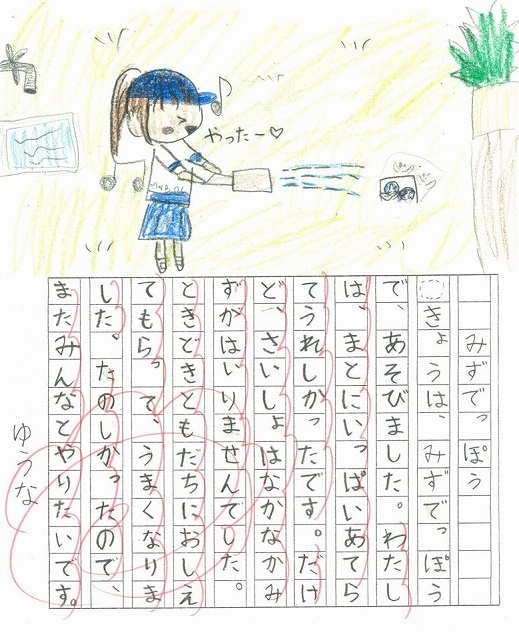 やったー♡
みずでっぽう
きょうは、みずでっぽう
で、あそびました。わたし
は、まとにいっぱいあてら
てうれしかったです。だけ
ど、さいしょはなかなかみ
ずがはいりませんでした。
ときどきともだちにおしえ
てもらって、うまくなりま
した。たのしかったので、
またみんなとやりたいです。
ゆうな